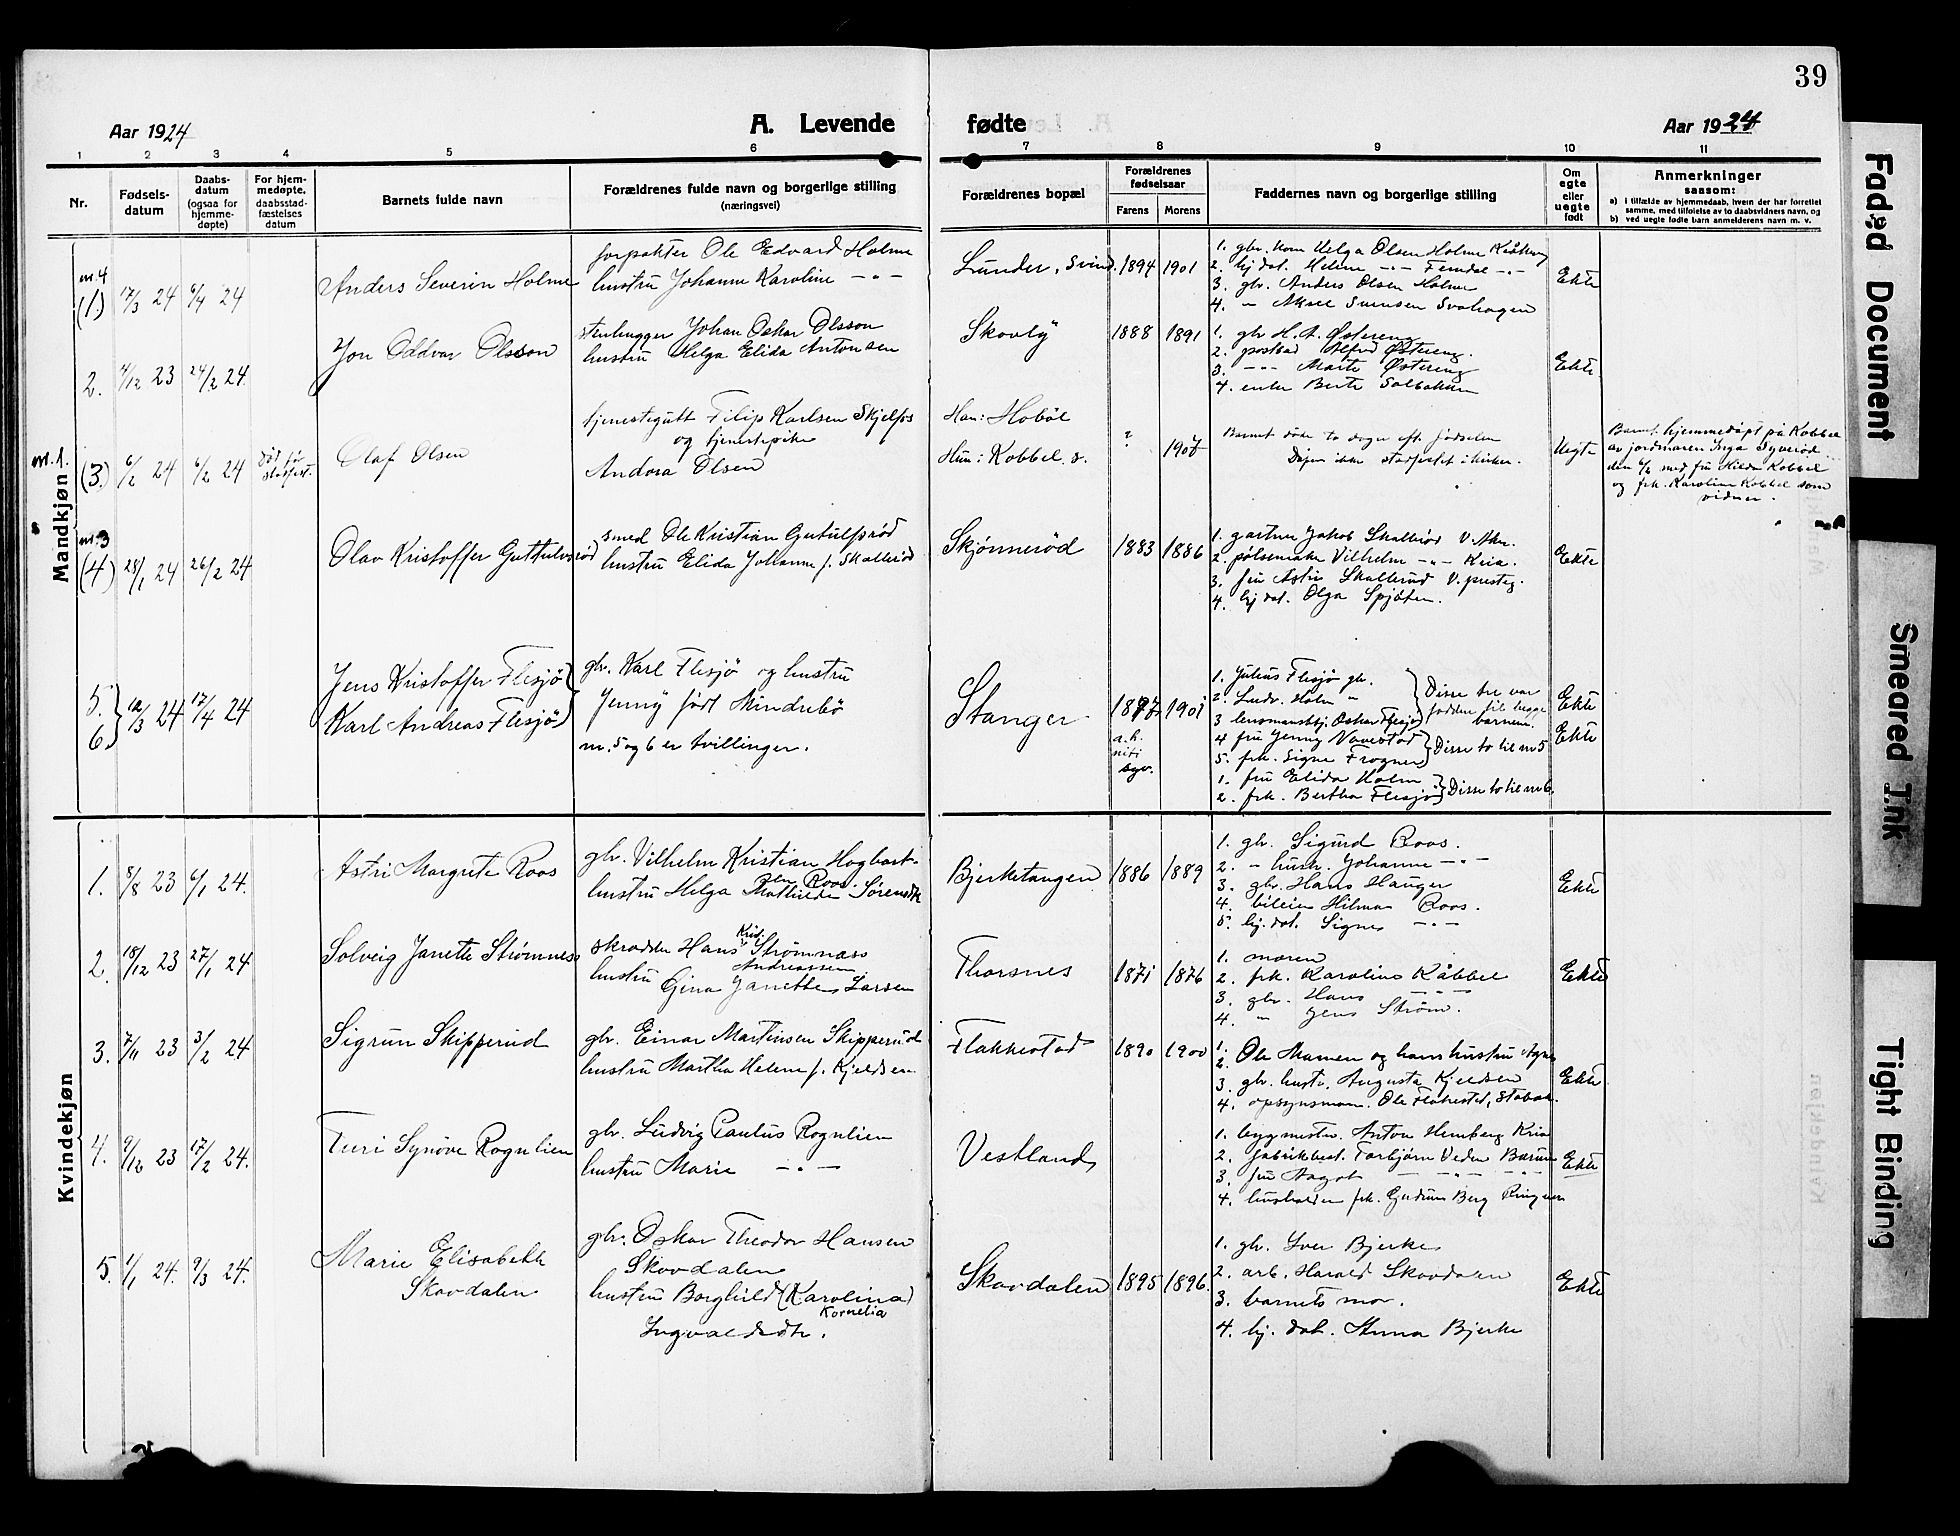 39
Aar 1924
A. Levende
fødte
Aar 1924
1 2 3 4 5 6 7 8 9 10 11
Nr.
Fødsels-
datum
Daabs-
datum
(ogsaa for
hjemme-
døpte)
For hjem-
medøpte,
daabsstad-
fæstelses
datum
Barnets fulde navn
Forældrenes fulde navn og borgerlige stilling
(næringsvei)
Forældrenes bopæl
Forældrenes
fødselsaar
Farens
Morens
Faddernes navn og borgerlige stilling
Om
egte
eller
uegte
født
Anmerkninger
saasom:
a) i tilfælde av hjemmedaab, hvem der har forrettet
samme, med tilføielse av to daabsvidners navn, og
b) ved uegte fødte barn anmelderens navn m. v.
Mandkjøn
nr. 4
(1.) 17/3 24 6/4 24
Anders Severin Holme
forpakter Ole Edvard Holme
hustru Johanne Karoline -"-
Lunder, Svind. 1894 1901
1. gbr. kone Helga Olsen Holme Kråkerøy
2. hj. dat. Helene -"- Femdal -"-
3. gbr. Anders Olsen Holme
4. " Aksel Svensen Svahagen
Ekte
2. 4/12 23 24/2 24.
Jon Oddvar Olsson
stenhugger Johan Oskar Olsson
hustru Helga Elida Antonsen
Skovly 1888 1891
1. gbr. H. A. Østereng
2. postbud Alfred Østereng.
3. -"- Marte Østereng
4. enke Berte Solbakken
Ekte
nr. 1.
(3.) 6/2 24 6/2 24 Død før stadfest.
Olaf Olsen
tjenestegutt Filip Karlsen Skjelfos
og tjenestepike
Andora Olsen
Han: Hobøl
Hun: Kobbel s. ? 1907
Barnet døde to dager eft. fødselen
Dåpen ikke stadfestet i kirken.
Uegte
Barnet hjemmedøpt på Kobbel
av jordmoren Inga Syverød
den 6/2 med fru Hilda Kobbel
og frk. Karoline Kobbel som
vidner.
nr. 3
(4) 28/1 24 26/2 24
Olav Kristoffer Guttulvsrød
smed Ole Kristian Gutulfsrød
hustru Elida Johanne f. Skallerød
Skjønnerød 1883 1886
1. gartner Jakob Skallerød V. Aker.
2. pølsemaker Vilhelm -"- Kria.
3. fru Astri Skallerud V. presteg.
4. hj. dat. Olga Spjøten.
Ekte
5. } 12/3 24 17/4 24
6.
Jens Kristoffer Flesjø
Karl Andreas Flesjø
gbr. Karl Flesjø og hustru
Jenny født Mindrebø
nr. 5 og 6 er tvillinger.
Stanger 1897 1901
1. Julius Flesjø gbr.
2. Ludv. Holm "
3 lensmannsbtj. Oskar Flesjø } Disse tre var fadder til begge barnene.
4 fru Jenny Navestad
5. frk. Signe Frogner } Disse to til nr 5
1. fru Elida Holm
2. frk. Bertha Flesjø } Disse to til nr 6.
Ekte
Ekte
Kvindekjøn
1. 8/8 23 6/1 24.
Astri Margrete Roos
gbr. Vilhelm Kristian Hogbart-
sen Roos
hustru Helga Mathilde Sørensdtr
Bjerketangen 1886 1889
1. gbr. Sigurd Roos.
2. " hustr. Johanne -"-
3. gbr. Hans Hauger
4. bileier Hilmar Roos.
5. hj. dat. Signe -"-
Ekte
2. 18/12 23 27/1 24
Solveig Janette Strømness
skrædder Hans Krist. Strømnæss
Andreassen
hustru Gina Janette Larsen
Thorsnes 1871 1876
1. moren
2. frk. Karoline Kåbbel
3. gbr. Hans -"-
4. " Jens Strøm.
Ekte
3. 7/11 23 3/2 24
Sigrun Skipperud
gbr. Einar Martinsen Skipperud
hustru Martha Helene f. Kjeldsen
Flakkestad 1890 1900
1.
2. Ole Mamen og hans hustru Agnes
3. gbr. hustr. Augusta Kjeldsen
4. opsynsmann. Ole Flakestad, Stabæk.
Ekte
4. 9/12 23 17/2 24.
Turi Synøve Rognlien
gbr. Ludvig Paulus Rognlien
hustru Marie -"-
Vestland
1. byggmester. Anton Hemberg Kria
2. fabrikbest. Torbjørn Veden Bærum
3. fru Aagot -"-
4. husholder frk. Gudrun Berg Ringeren
Ekte
5. 1/1 24. 9/3 24.
Marie Elisabeth
Skovdalen
gbr. Oskar Theodor Hansen
Skovdalen
hustru Borghild (Karolina)
Kornelia
Ingvaldsdtr.
Skovdalen 1895 1896.
1. gbr. Iver Bjerke
2. arb. Harald Skovdalen
3. barnets mor.
4. hj. dat. Anna Bjerke
Ekte
Faded Document
Smeared Ink
Tight Binding